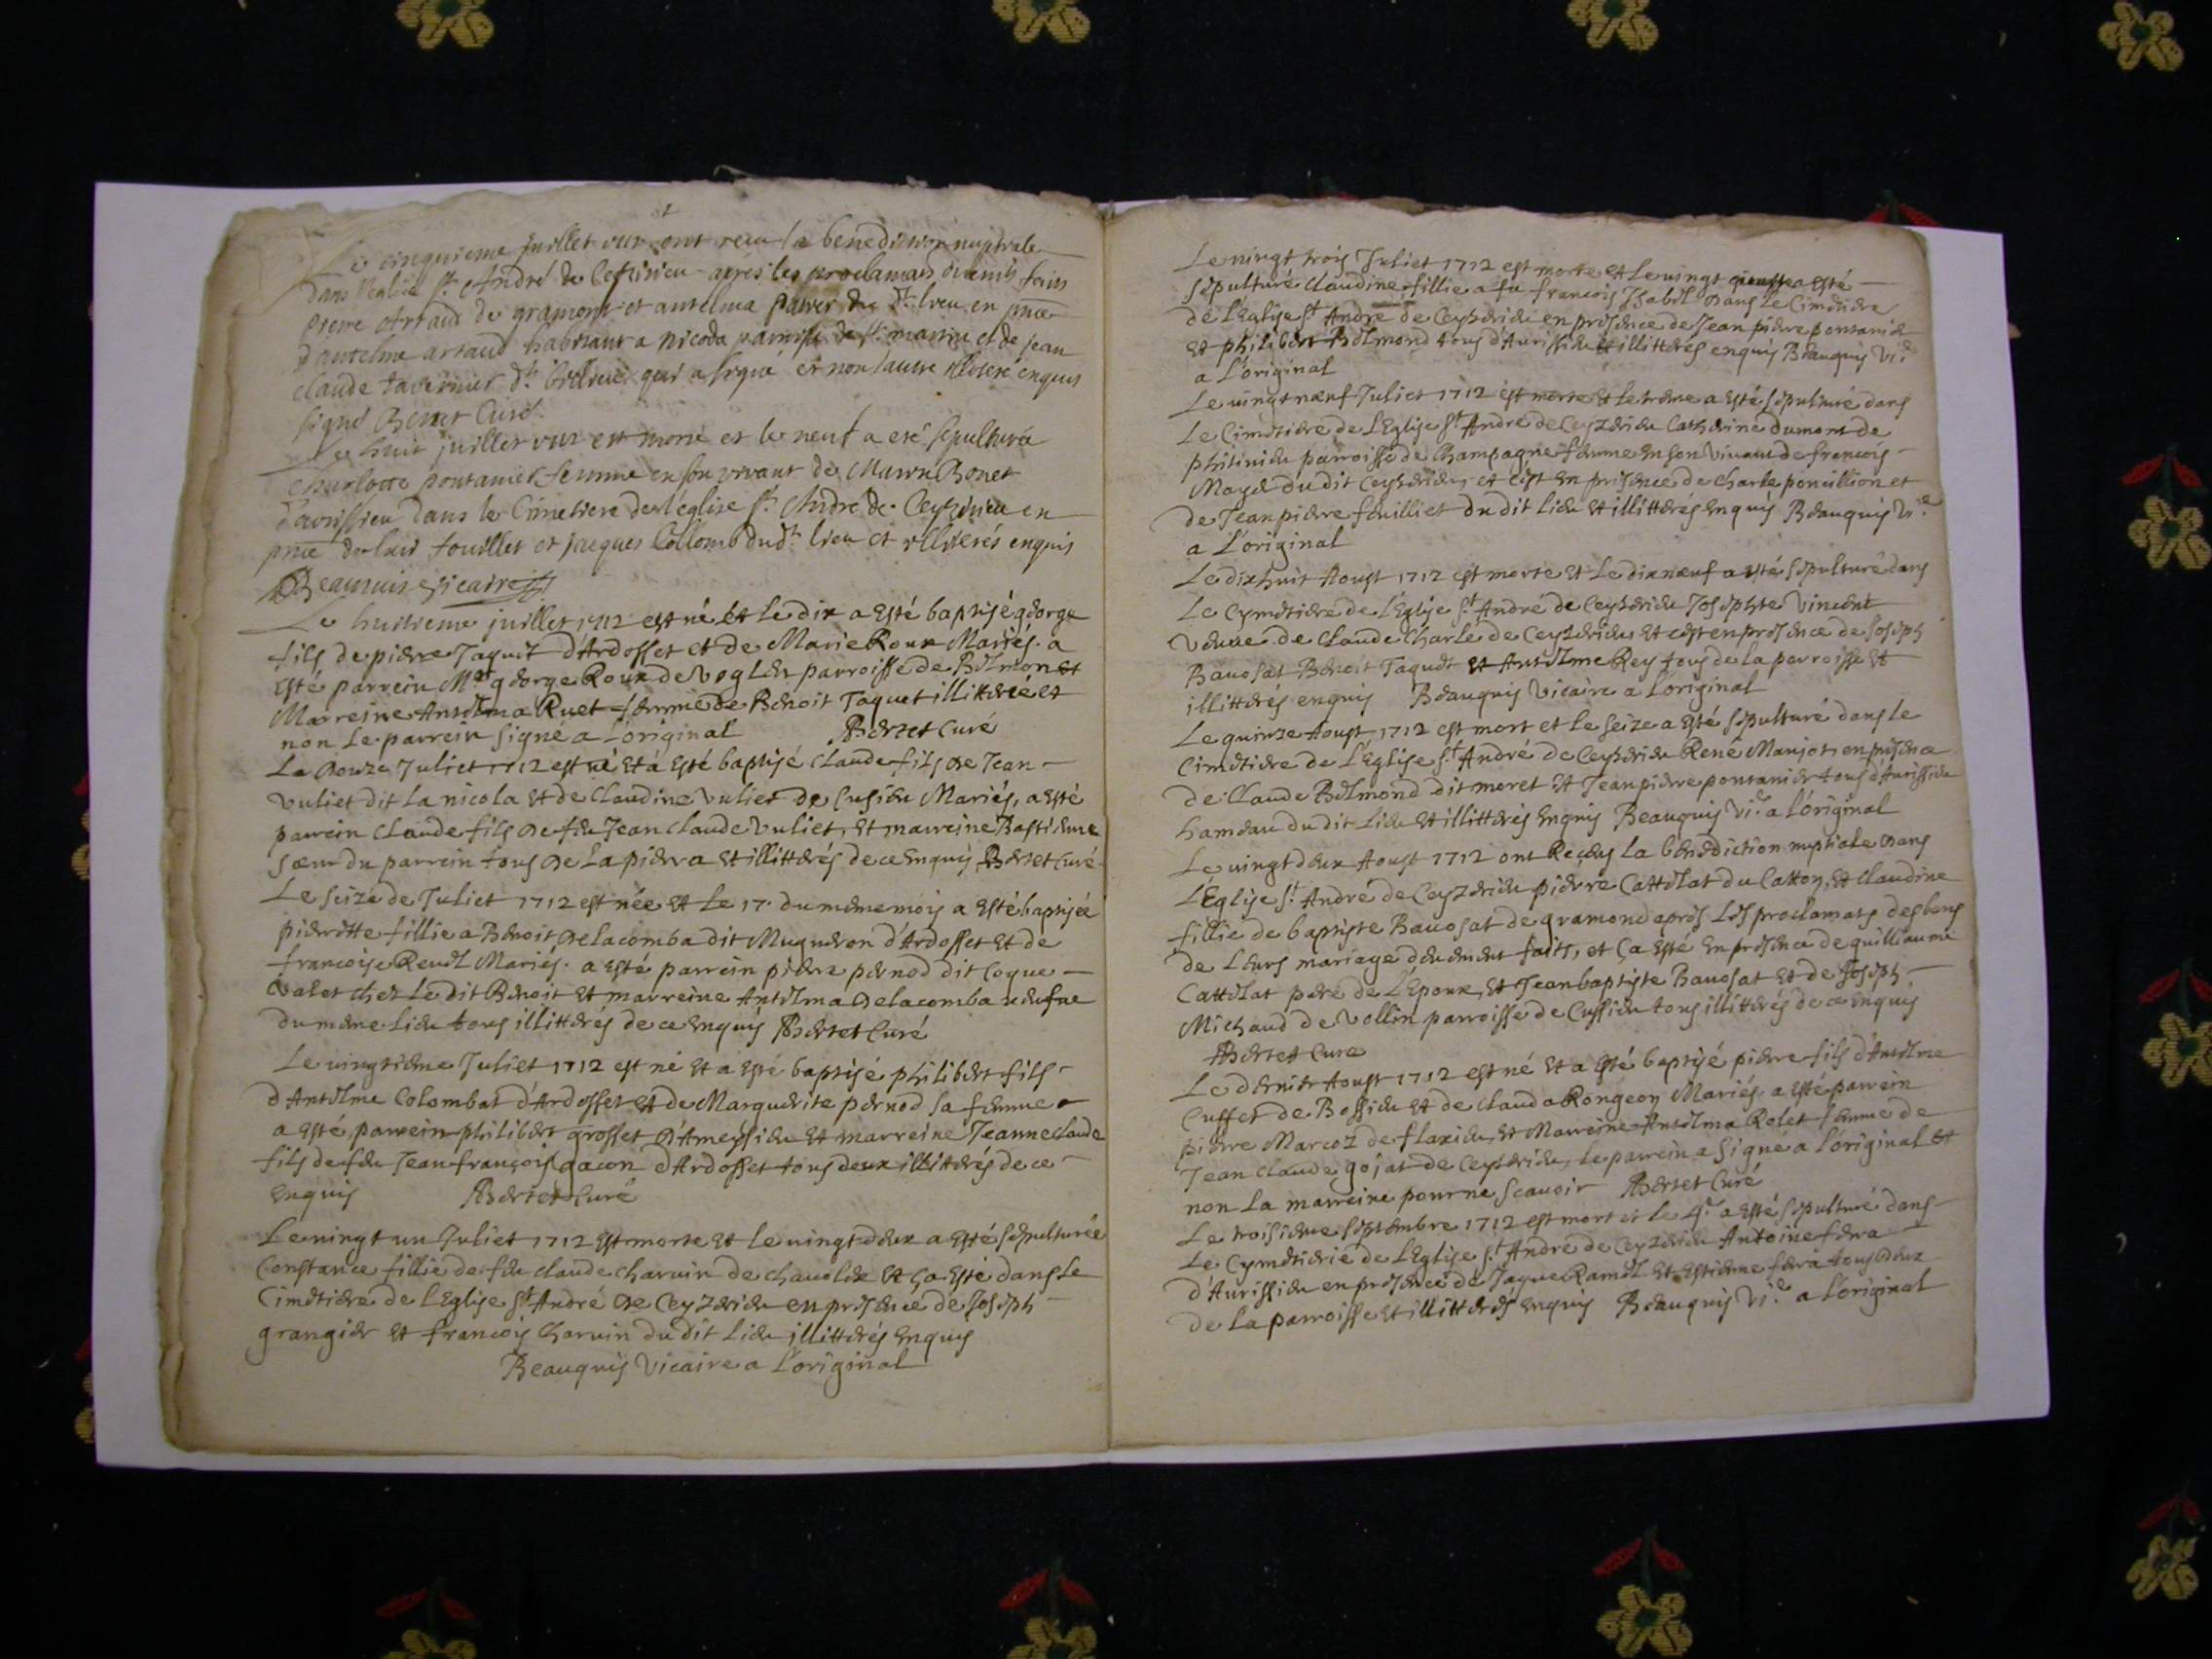 Le cinquieme juillet ont receu la benediction nuptiale
dans l'eglise St André de Ceyzirieu apres les proclamats faits
Pierre Artaud de gramont et antelma du dt lieu en pnce
d'antelme artaud habitant a nicoda parroisse de St martin et de jean
claude tavernier dt qui a signé et non l'autre illiteré enquis
signé Bertet Curé
Le huit juillet est morte et le neuf a eté sepulturée
Charlotte pontanier femme en son vivant de Martin Bonet
d'avrissieu dans le Cimetiere de l'église St André de Ceyzirieu en
pnce de luis touillet et jacques Collomb du dt lieu et illiterés enquis
Beauquis vicaire
Le huitieme juillet 1712 est né et le dix a esté baptisé george
fils de pierre Jaquet d'Ardosset et de Marie Roux Mariés. a
esté parrein Mre george Roux de voglen parroisse de Belmon et
Marreine Antelma Ruet femme de Benoit Jaquet illitterée et
non le parrein signe a L'original Bertet Curé
Le douze Juliet 1712 est né et a esté baptisé Claude fils de Jean
vuliet dit la nicola et de Claudine vuliet de Cusieu Mariés, a esté
parrein Claude fils de feu Jean Claude vuliet, et marreine Bastienne
sœur du parrein tous de la pierra et illitterés de ce enquis Bertet Curé
Le seize de Juliet 1712 est née et le 17. du meme mois a esté baptisée
pierrette fillie a Benoit delacomba dit Mugneron d'Ardosset et de
francoise Revel Mariés. a esté parrein pierre pernod dit Coque
valet chez le dit Benoit et marreine Antelma delacomba
du meme lieu tous illitterés de ce enquis Bertet Curé
Le vingtieme Juliet 1712 est né et a esté baptisé philibert fils
d'Antelme Colombat d'Ardosset et de Marguerite pernod sa femme
a esté parrein philibert grosset d'Ameysieu et marreine Jeanne Claude
fils de feu Jean francois gacon d'Ardosset tous deux illitterés de ce
enquis Bertet Curé
Le vingt un Juliet 1712 est morte et le vingt deux a esté sepulturée
Constance fillie de feu Claude Charvin de Chavolex et ça esté dans le
Cimetiere de L'Eglise St André de Ceyzerieu en presence de Joseph
grangier et francois Charvin du dit Lieu illitterés enquis
Beauquis Vicaire a L'original
Le vingt trois Juliet 1712 est morte et Le vingt a esté
sepulturé Claudine fillie a fu francois Isabel dans le Cimetiere
de L'Eglise St André de Ceyzerieu en presence de Jean pierre pontanier
et philibert Belmond tous d'Avrissieu et illitterés enquis Beauquis Vi.e
a L'original
Le vingt neuf Juliet 1712 est morte et le trente a esté sepulturé dans
Le Cimetiere de L'Eglise St André de Ceyzerieu Catherine dumont de
phitinieu parroisse de Champagne femme en son vivant de francois
Mayet du dit Ceyzerieu, et c'est en presence de Charle poncillion et
de Jean pierre feuilliet du dit Lieu et illitterés enquis Beauquis Vi.e
a L'original
Le dixhuit Aoust 1712 est morte et Le dix neuf a esté sepulturé dans
Le Cymetiere de L'Eglise St André de Ceyzerieu Josephte Vincent
veuve de Claude Charle de Ceyzerieu et c'est en presence de Joseph
Bavosat Benoit Jaquet et Antelme Rey tous de la parroisse et
illitterés enquis Beauquis Vicaire a L'original
Le quinze Aoust 1712 est mort et le seize a esté sepulturé dans le
Cimetiere de L'Eglise St André de Ceyzerieu René Manjot en presence
de Claude Belmond dit moret et Jean pierre pontanier tous d'Avrissieu
hameau du dit Lieu et illitterés enquis Beauquis Vi.e a L'original
Le vingt deux Aoust 1712 ont Reçeus la benediction nuptiale dans
L'Eglise St André de Ceyzerieu pierre Cattelat du Catton, et Claudine
fillie de baptiste Bavosat de gramond apres les proclamats des bans
de Leurs mariage deuement faits, et ça esté en presence de guilliaume
Cattelat pere de L'Epoux, et Jean baptiste Bavosat et de Joseph
Michaud de Vollin parroisse de Cussieu tous illitterés de ce enquis
Bertet Curé
Le dernier Aoust 1712 est né et a esté baptisé pierre fils d'Antelme
Cusset de Bossieu et de Clauda Rongeon Mariés, a esté parrein
pierre Marcoz de flaxieu, et Marreine Antelma Rolet femme de
Jean Claude gojat de Ceyzerieu, le parrein a signé a L'original et
non la marreine pour ne scavoir Bertet Curé
Le troisieme septembre 1712 est mort et le 4.e a esté sepulturé dans
Le Cymetiere de L'Eglise St André de Ceyzerieu Antoine ferra
d'Avrissieu en presence de Jaque Ramel et Estienne ferra tous deux
de la parroisse et illitterés enquis Beauquis Vi.e a L'original